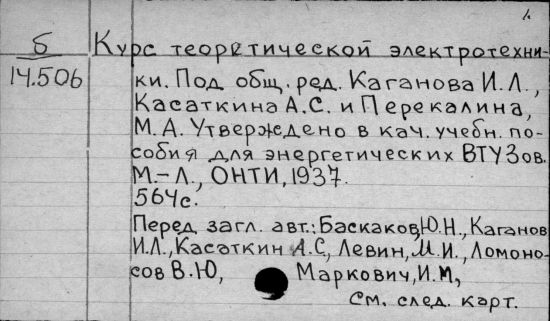 б Курс теоретической электротехни-
14.506 ки. Под общ. ред. Каганова И.Л.,
Касаткина А.С. и Перекалина,
М.А. Утверждено в кач. учебн. по-
собия для энергетических ВТУЗов.
М.-Л., ОНТИ, 1937.
564с.
Перед загл. авт.: Баскаков, Ю.Н., Каганов
И.Л., Касаткин А.С, Левин, М.И., Ломоно-
сов В.Ю, Маркович, И.М,
См. след. карт.